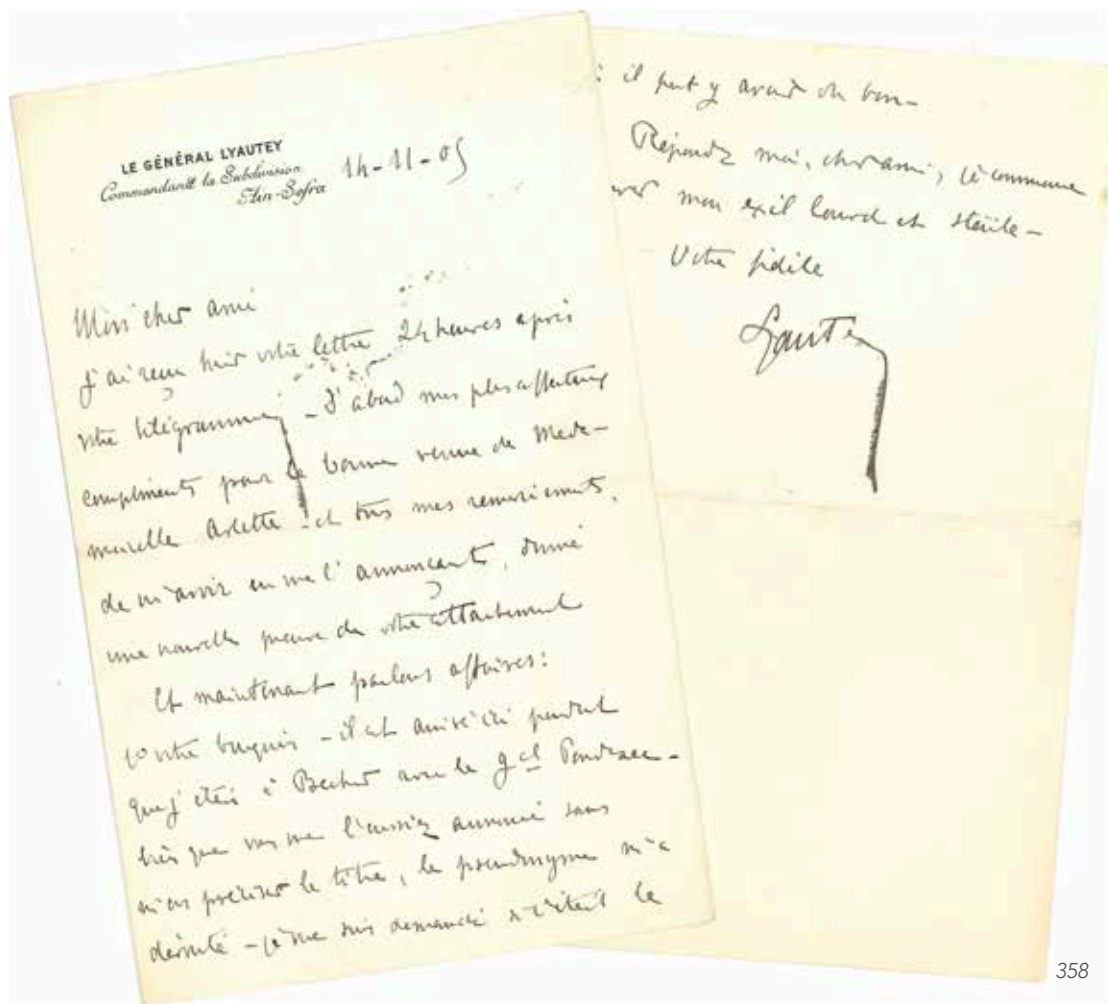 LE GÉNÉRAL LYAUTEY
Commandant la Subdivision
Aïn-Sefra
14-11-05
Mon cher ami
J'ai reçu hier votre lettre 24 heures après
votre télégramme - D'abord mes plus affectueux
compliments pour la bonne venue de Made-
moiselle Arlette et tous mes remerciements,
de m'avoir en me l'annonçant, donné
une nouvelle preuve de votre attachement
Et maintenant parlons affaires:
1º votre bouquin - il est arrivé ici pendant
que j'étais à Bechar avec le gal
bien que vous me l'aussiez annoncé sans
m'en préciser le titre, le pseudonyme m'a
dérouté - je me suis demandé si c'était le
: il peut y avoir du bon-
Répondez moi, cher ami, je commence
mon exil lourd et stérile-
Votre fidèle
Lyautey
358